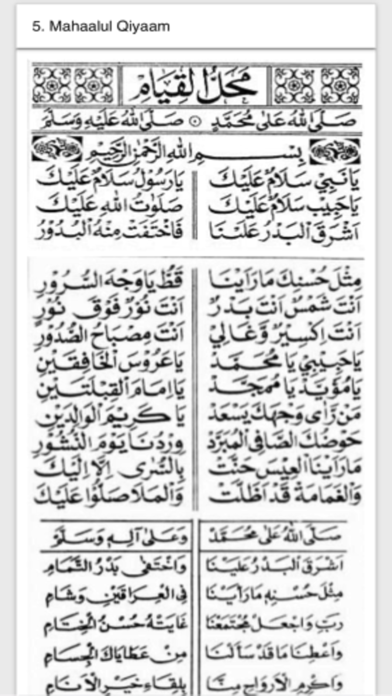 5. Mahaalul Qiyaam
مَحَلُّ الْقِيَامِ
صَلَّى اللهُ عَلَى مُحَمَّدٍ ۝ صَلَّى اللهُ عَلَيْهِ وَسَلَّمَ
بِسْمِ اللهِ الرَّحْمٰنِ الرَّحِيْمِ
يَا نَبِيْ سَلَامٌ عَلَيْكَ يَا رَسُوْلْ سَلَامٌ عَلَيْكَ
يَا حَبِيْبْ سَلَامٌ عَلَيْكَ صَلَوٰتُ اللهِ عَلَيْكَ
اَشْرَقَ الْبَدْرُ عَلَيْنَا فَاخْتَفَتْ مِنْهُ الْبُدُوْرُ
مِثْلَ حُسْنِكَ مَا رَاَيْنَا قَطُّ يَا وَجْهَ السُّرُوْرِ
اَنْتَ شَمْسٌ اَنْتَ بَدْرٌ اَنْتَ نُوْرٌ فَوْقَ نُوْرٍ
اَنْتَ اِكْسِيْرٌ وَّغَالِيْ اَنْتَ مِصْبَاحُ الصُّدُوْرِ
يَا حَبِيْبِيْ يَا مُحَمَّدْ يَا عَرُوْسَ الْخَافِقَيْنِ
يَا مُؤَيَّدْ يَا مُمَجَّدْ يَا اِمَامَ الْقِبْلَتَيْنِ
مَنْ رَاٰى وَجْهَكَ يَسْعَدْ يَا كَرِيْمَ الْوَالِدَيْنِ
حَوْضُكَ الصَّافِى الْمُبَرَّدْ وِرْدُنَا يَوْمَ النُّشُوْرِ
مَا رَاَيْنَا الْعِيْسَ حَنَّتْ بِالسُّرٰى اِلَّا اِلَيْكَ
وَالْغَمَامَةْ قَدْ اَظَلَّتْ وَالْمَلَا صَلُّوْا عَلَيْكَ
صَلَّى اللهُ عَلٰى مُحَمَّدْ وَعَلٰى اٰلِهٖ وَسَلَّمْ
اَشْرَقَ الْبَدْرُ عَلَيْنَا وَاخْتَفٰى بَدْرُ التَّمَامِ
مِثْلَ حُسْنِهٖ مَا رَاَيْنَا فِى الْعِرَاقَيْنِ وَشَامِ
رَبِّ وَاجْعَلْ مُجْتَمَعْنَا غَايَتُهٗ حُسْنُ الْخِتَامِ
وَاَعْطِنَا مَا قَدْ سَاَلْنَا مِنْ عَطَايَاكَ الْجِسَامِ
وَاكْرِمِ الْاَرْوَاحَ مِنَّا بِلِقَاءِ خَيْرِ الْاَنَامِ